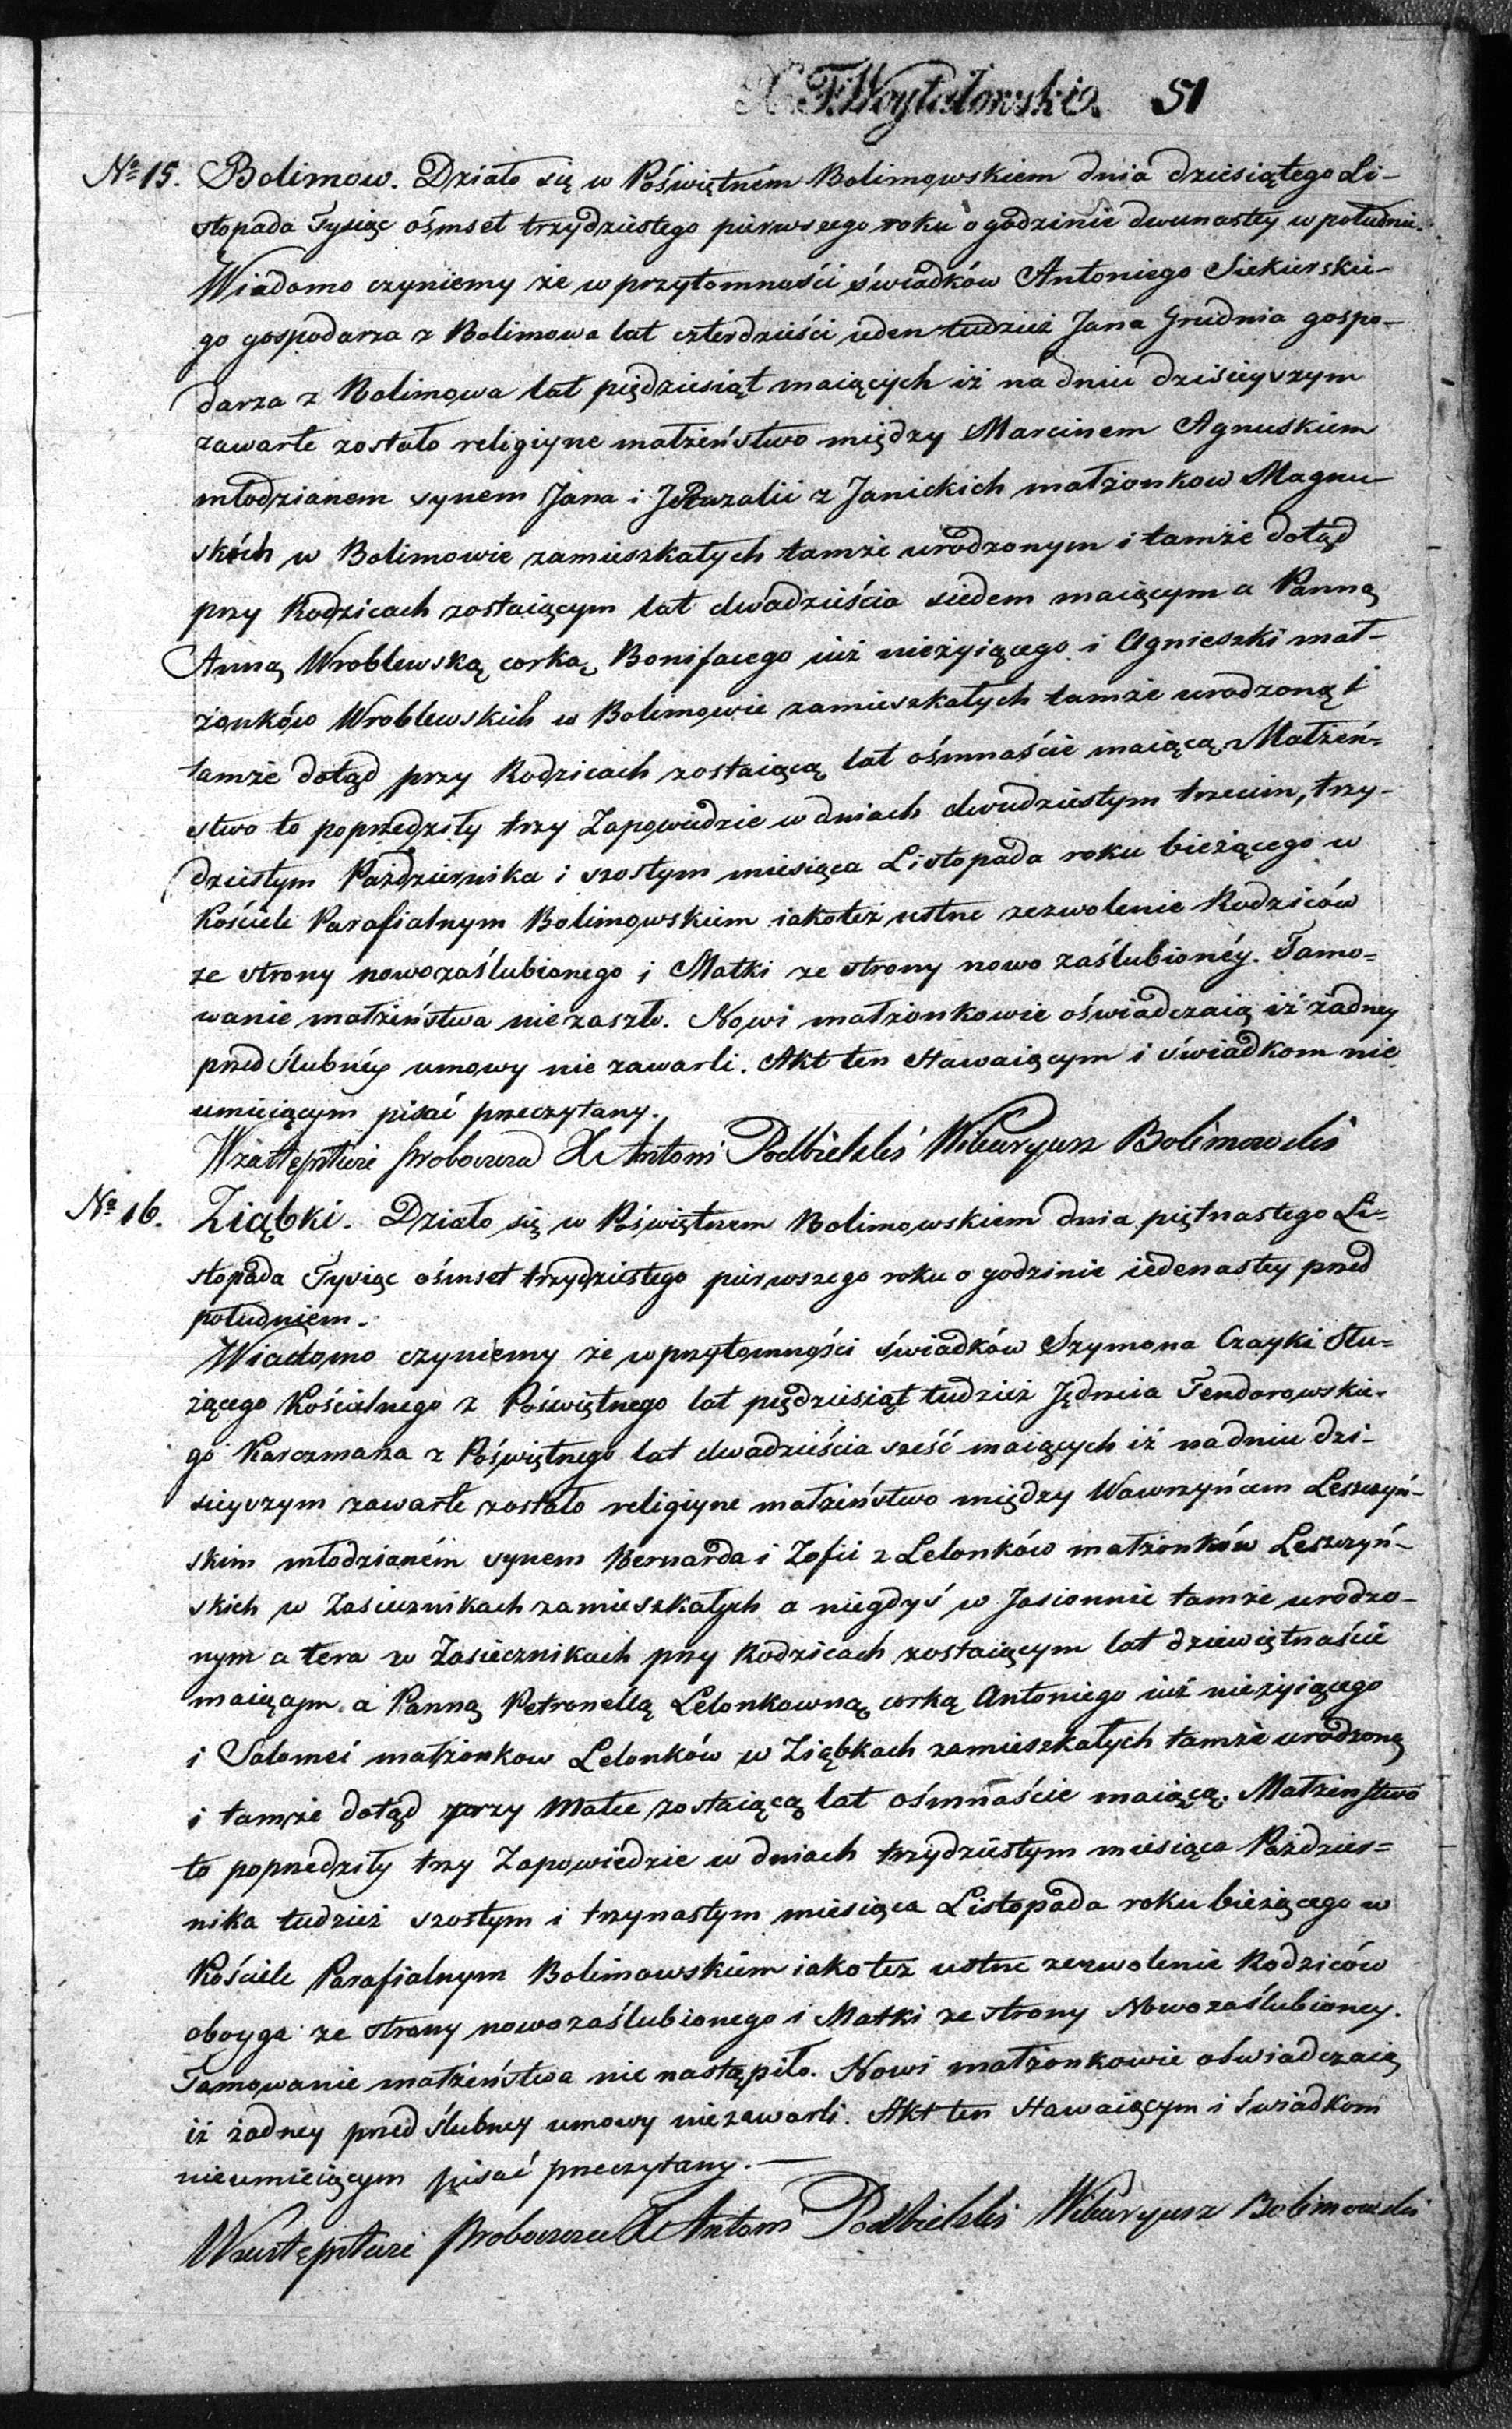 X. F. Woytalowski. 51
No 15. Bolimow. Działo się w Poświętném Bolimowskiem dnia dziesiątego Li-
stopada Tysiąc óśmset trzydziestego pierwszego roku o godzinie dwunastey w południe.
Wiadomo czyniemy że w przytomności świadków Antoniego Siekierskie-
go gospodarza z Bolimowa lat czterdzieści ieden tudzież Jana Grudnia gospo-
darza z Bolimowa lat piędziesiąt maiących iż na dniu dzisieyszym
zawarte zostało religiyne małżeństwo między Marcinem Agnuskiem
młodzianem synem Jana i Rozalii z Janickich małżonkow Magnu-
skich w Bolimowie zamieszkałych tamże urodzonym i tamże dotąd
przy Rodzicach zostaiącym lat dwadzieścia siedem maiącym a Panną
Anną Wroblewską corką Bonifacego iuż nieżyiącego i Agnieszki mał-
żonków Wroblewskich w Bolimowie zamieszkałych tamże urodzoną i
tamże dotąd przy Rodzicach zostaiącą lat ośmnaście maiącą. Małżeń-
stwo to poprzedziły trzy Zapowiedzie w dniach dwudziestym trzecim, trzy-
dziestym Października i szostym miesiąca Listopada roku bieżącego w
Kościele Parafialnym Bolimowskiem iakoteż ustne zezwolenie Rodziców
ze strony nowozaślubionego i Matki ze strony nowo zaślubionéy. Tamo-
wanie małżeństwa nie zaszło. Nowi małżonkowie oświadczaią iż żadney
przed ślubnéy umowy nie zawarli. Akt ten stawaiącym i świadkom nie
umieiącym pisać przeczytany.
W zastępstwie Proboszcza X Antoni Podbielski Wikaryusz Bolimowski
No 16. Ziąbki. Działo się w Poświętnem Bolimowskiem dnia piętnastego Li-
stopada Tysiąc ośmset trzydziestego pierwszego roku o godzinie iedenastey przed
południem.
Wiadomo czyniemy że w przytomności świadków Szymona Czayki Słu-
żącego Kościelnego z Poświętnego lat piędziesiąt tudzież Jędrzeia Fendorowskie-
go Karczmarza z Poświętnego lat dwadzieścia sześć maiących iż na dniu dzi-
sieyszym zawarte zostało religiyne małżeństwo między Wawrzyńcem Leszczyń-
skim młodzianém synem Bernarda i Zofii z Lelonków małżonków Leszczyń-
skich w Zasiecznikach zamieszkałych a niegdyś w Jasionnie tamże urodzo-
nym a tera w Zasiecznikach przy Rodzicach zostaiącym lat dziewiętnaście
maiącym a Panną Petronellą Lelonkowną, corką Antoniego iuż nieżyiącego
i Salomei małżonkow Lelonków w Ziąbkach zamieszkałych tamże urodzoną
i tamże dotąd przy Matce zostaiącą lat ośmnaście maiącą. Małżenstwo
to poprzedziły trzy Zapowiedzie w dniach trzydziestym miesiąca Paździer-
nika tudzież szostym i trzynastym miesiąca Listopada roku bieżącego w
Kościele Parafialnym Bolimowskiem iako też ustne zezwolenie Rodziców
oboyga ze strony nowozaślubionego i Matki ze strony Nowozaślubioney.
Tamowanie małżeństwa nie nastąpiło. Nowi małżonkowie oświadczaią
iż żadney przed ślubney umowy nie zawarli. Akt ten stawaiącym i świadkom
nieumieiącym pisać przeczytany.—
W zastępstwie Proboszcza X Antoni Podbielski Wikaryusz Bolimowski